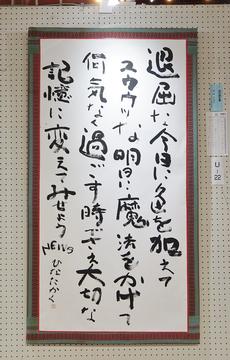 退屈な今日に色を加えて
ユウウツな明日に魔法をかけて
何気なく過ごす時でさえ大切な
記憶に変えてみせよう
NEWS
ひなたかく
U-22